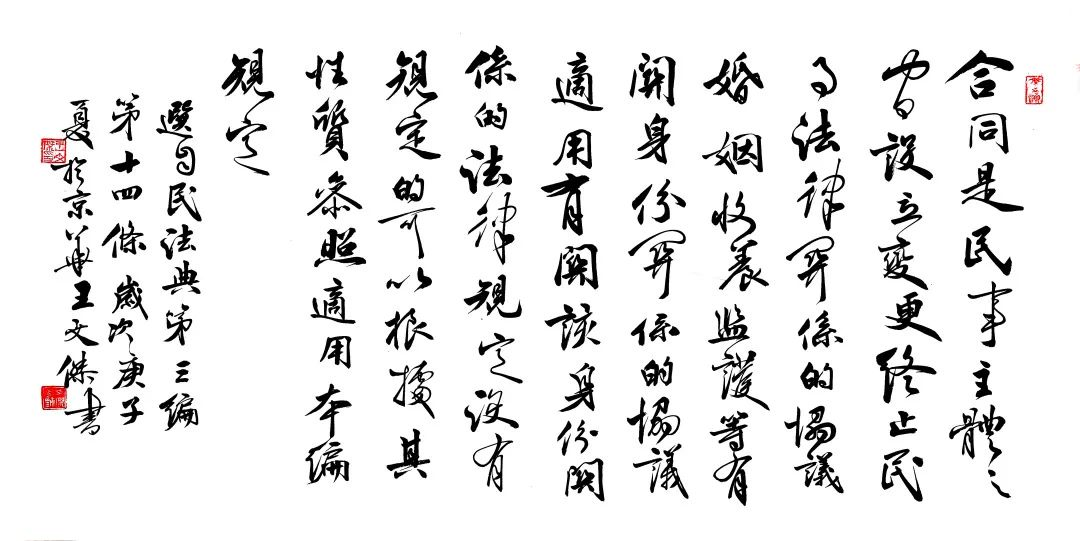 合同是民事主體之
間設立變更終止民
事法律關係的協議
婚姻收養監護等有
關身份關係的協議
適用有關該身份關
係的法律規定沒有
規定的可以根據其
性質參照適用本編
規定
選自民法典第三編
第十四條歲次庚子
夏於京華王文傑書